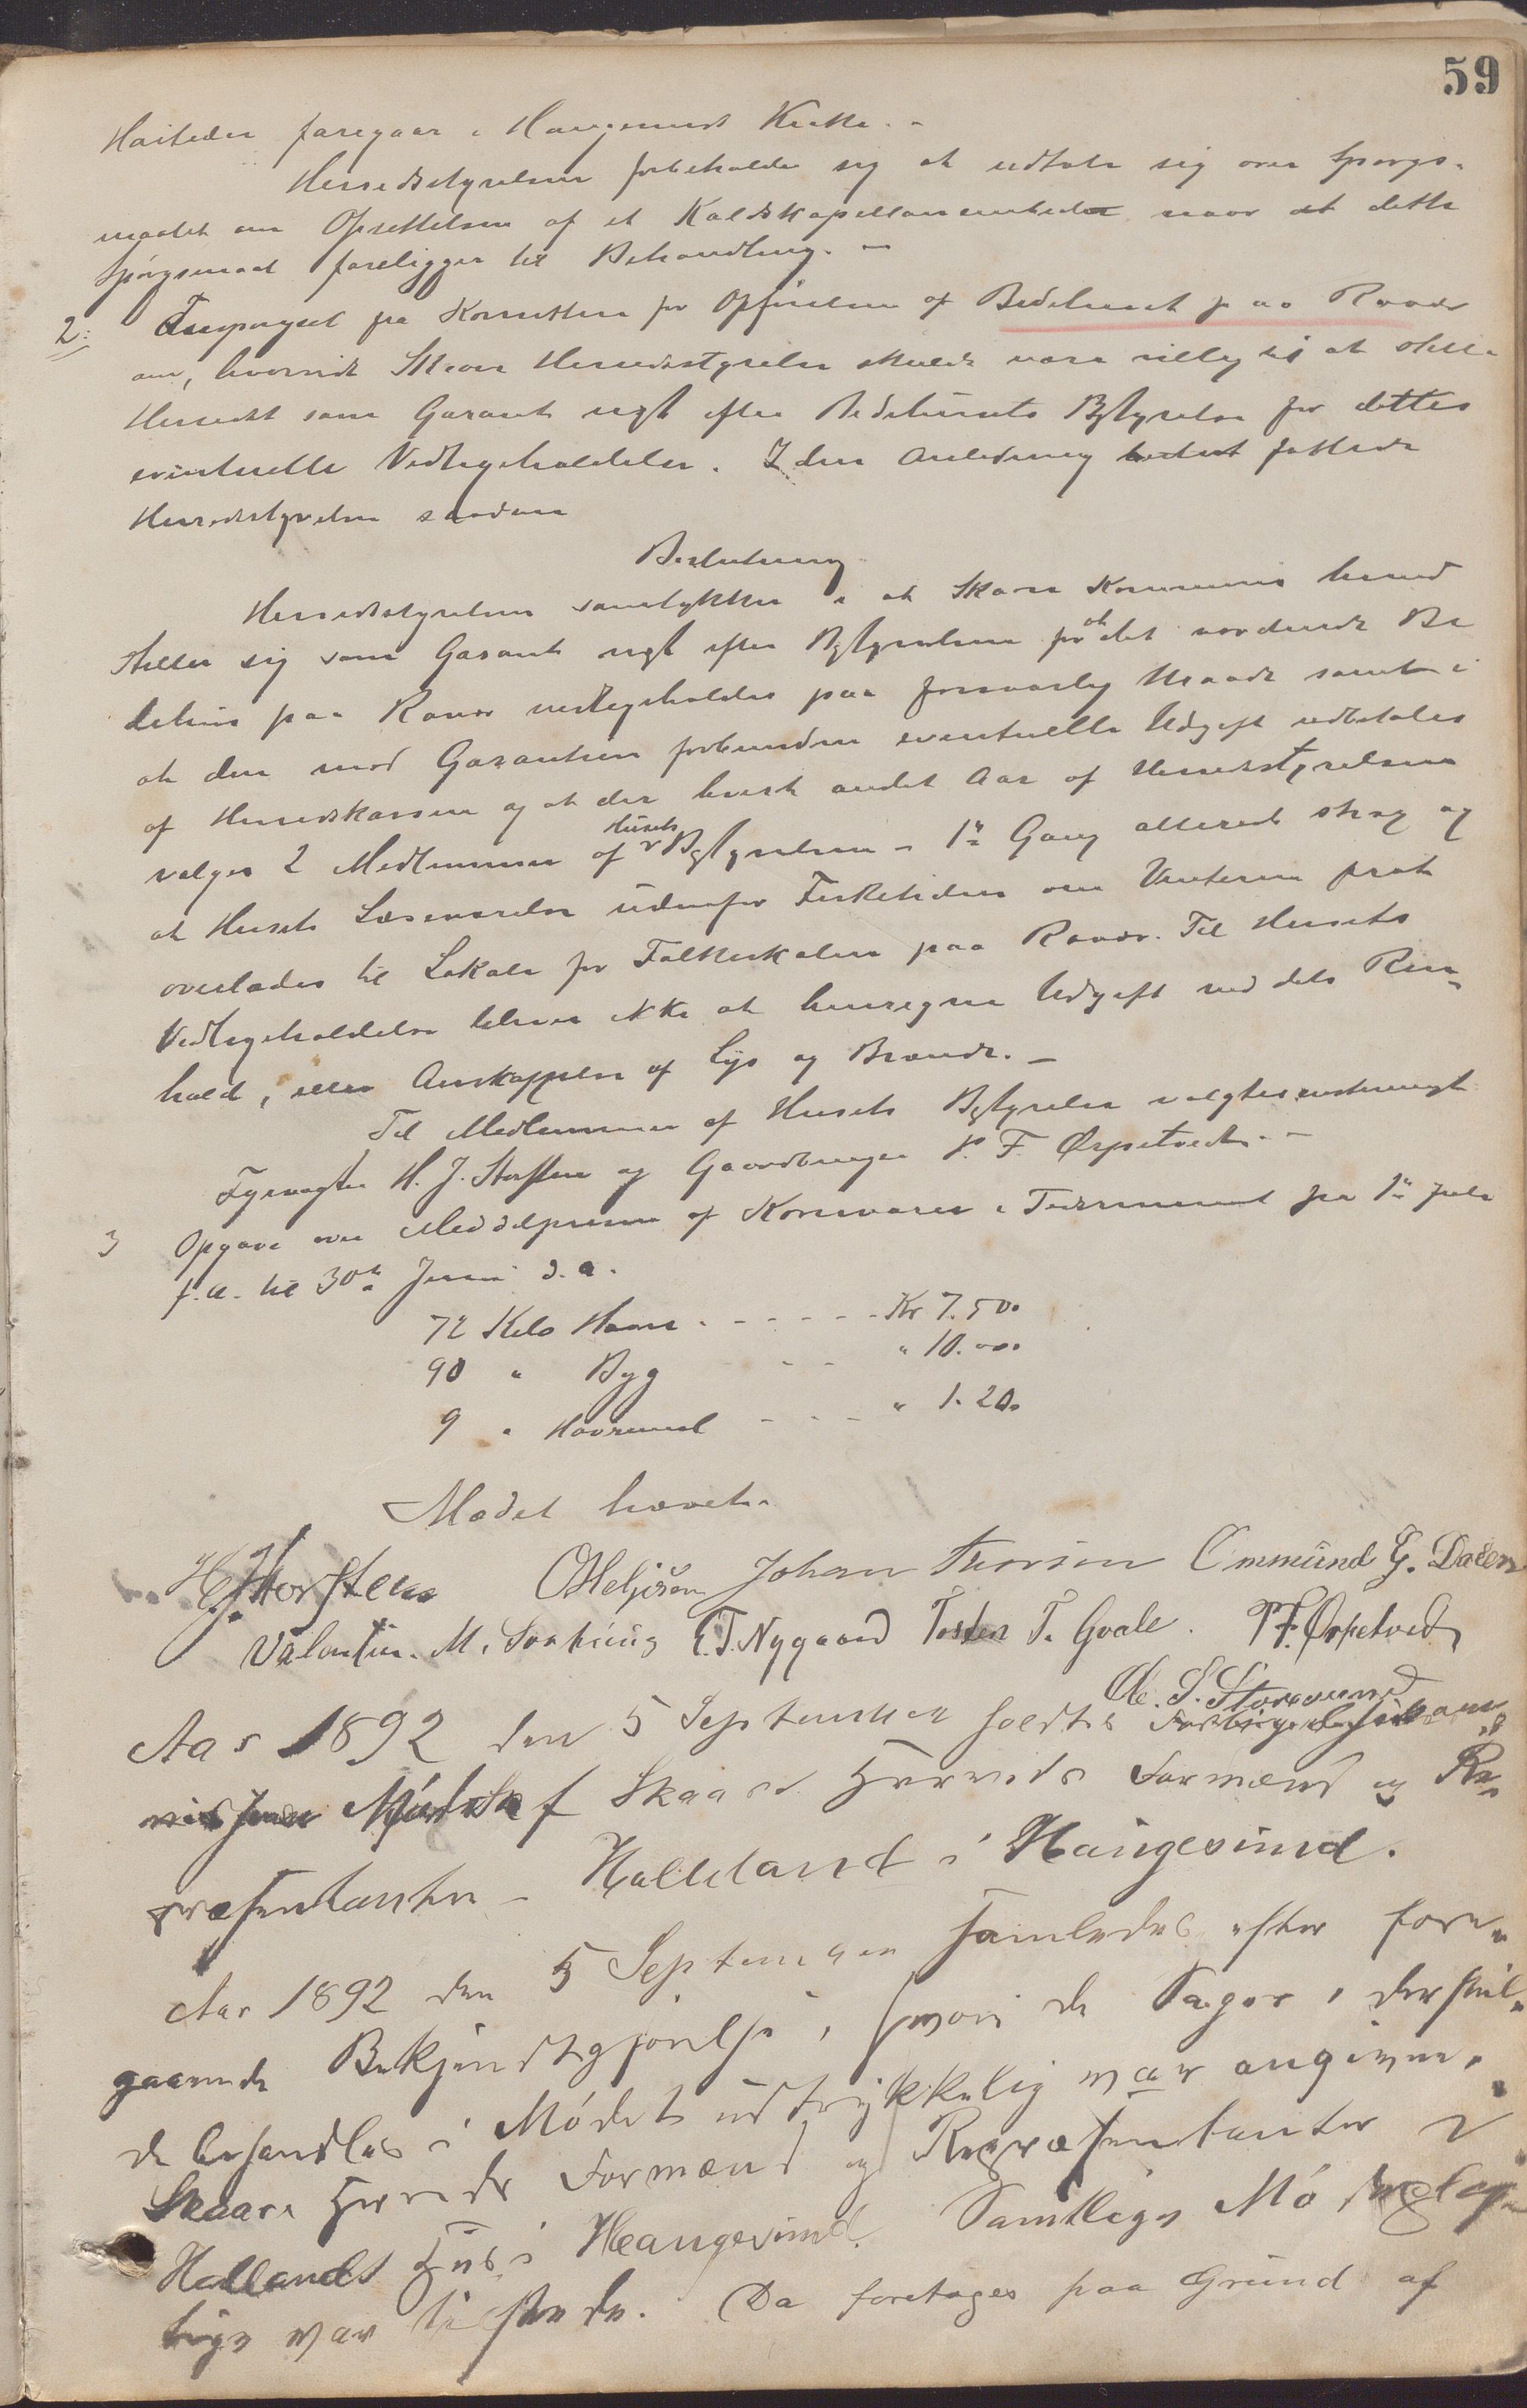 59
Høitiden foregaar i Haugesund Kirke. -
Herredsstyrelsen forbeholder sig at udtale sig over Spørgs-
maalet om Oprettelsen af et Kaldskapellanembede naar dette
Spørgsmaal foreligger til Behandling. -
2: Forespørgsel fra Komiteen for Opførelsen af Bedehuset paa Røvær
om, hvorvidt Skaare Herredsstyrelse skulde være villig til at stille
Herredet som Garant ligeoverfor Bedehusets Bestyrelse for dettes
eventuelle Vedligeholdelse. I den Anledning fattede
Herredsstyrelsen saadan
Beslutning
Herredsstyrelsen samtykker i at Skaare Kommune herved
stiller sig som Garant Bestyrelsen for at det vordende Be
dehus paa Røvær vedligeholdes paa forsvarlig Maade samt i
at den med Garantien forbundne eventuelle Udgift udbetales
af Herredskassen og at der hvert andet Aar af Herredsstyrelsen
vælges 2 Medlemmer af Husets Bestyrelsen - 1ste Gang allerede strax og
at Husets Læseværelse udenfor Fisketiden om Vinteren frit
overlades til Lokale for Folkeskolen paa Røvær. Til Husets
Vedligeholdelse bliver ikke at henregne Udgift ved dets Ren-
hold, eller Anskaffelse af Lys og Brænde. -
Til Medlemmer af Husets Bestyrelse valgtes enstemmigt
Fyrvogter H. J. Storsten og Gaardbruger P. F. Ørpetvedt. -
3 Opgave over Middelpriserne af Kornvarer i Tidsrummet fra 1ste Juli
f. A. til 30te Juni d. a.
72 Kilo Havre - - - - - Kr 7.50
90 " Byg - - " 10.00
9 " Havremel - - - " 1.20
Mødet hævet.
H. J. Storsten O Heljesen Johan Thorsen Ommund G. Dalen
Valentin. M. Sørhaug E. T. Nygaard Torsten T. Gvale. P. F. Ørpetvedt
A. S. Storesund
Aar 1892 den 5 September holdtes
Møde af Skaare Herreds Formænd og Re-
præsentanter - Halleland i Haugesund.
Aar 1892 den 5 September samledes efter fore-
gaaende Bekjendtgjørelse, hvori de Sager, der skul-
de behandles i Mødet udtrykkelig var angivne,
Skaare Herreds Formænd og Repræsentanter i
Hallands Hus i Haugesund. Samtlige Mødeplig-
tige var tilstede. Da foretages paa Grund af